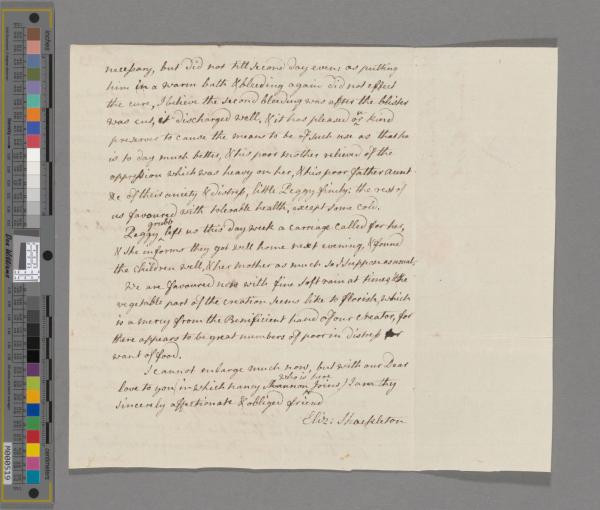 necessary, but did not till second day even: as putting
him in a warm bath & bleeding again did not effect
the cure, I believe the second bleeding was after the blister
was cut, it discharged well, & it has pleased our kind
preserver to cause the means to be of such use as that he
is to day much better, & his poor mother relieved of the
oppression which was heavy on her, & his poor father aunt
&c of their anxiety & distress, little Peggy finely: the rest of
us favoured with tolerable health, except some cold.
Peggy grubb left us this day week a carriage called for her,
& she informs they got well home next evening, & found
the children well, & her mother as much so I suppose as usual,
We are favoured now with fine soft rain at times & the
vegetable part of the creation seems like to florish, which
is a mercy from the Benificient hand of our Creator, for
there appears to be great numbers of poor in distress for
want of food.
I cannot enlarge much now, but with our Dear
love to you (in which nancy Shannon who is here Joins) I am thy
sincerely affectionate & obliged friend
Eliz: Shackleton
inches
centimeters
Don Williams
M000519